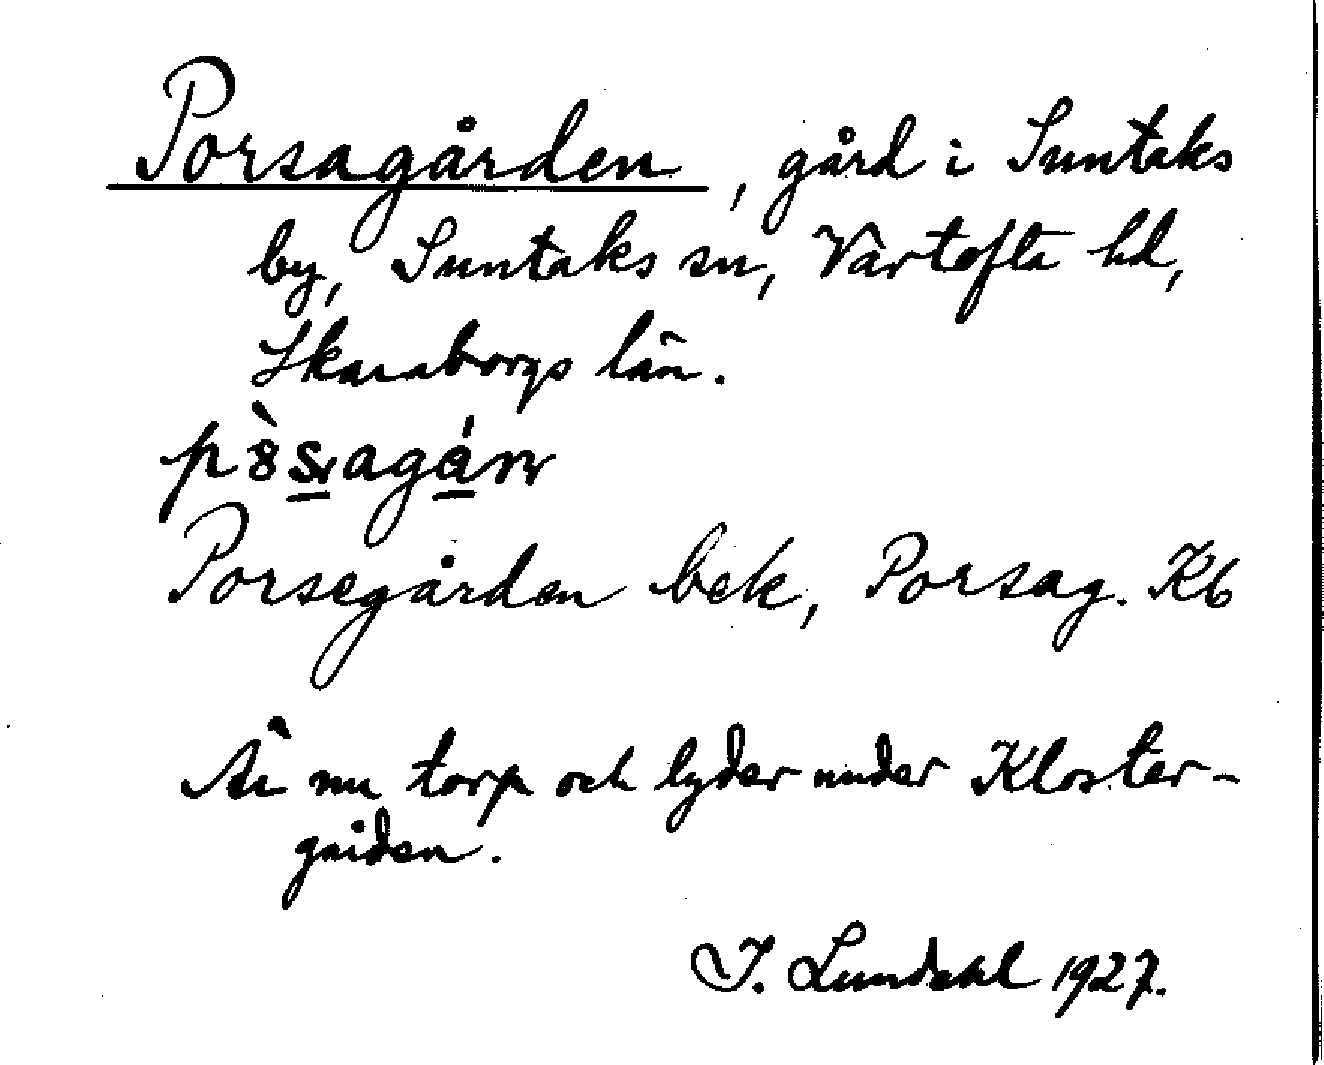 Porsagården, gård i Suntaks
by, Suntaks sn, Vartofta hd,
Skaraborgs län.
Porsegården bek, Porsag. Kb
Är nu torp och lyder under Kloster-
gården.
I. Lundahl 1927.